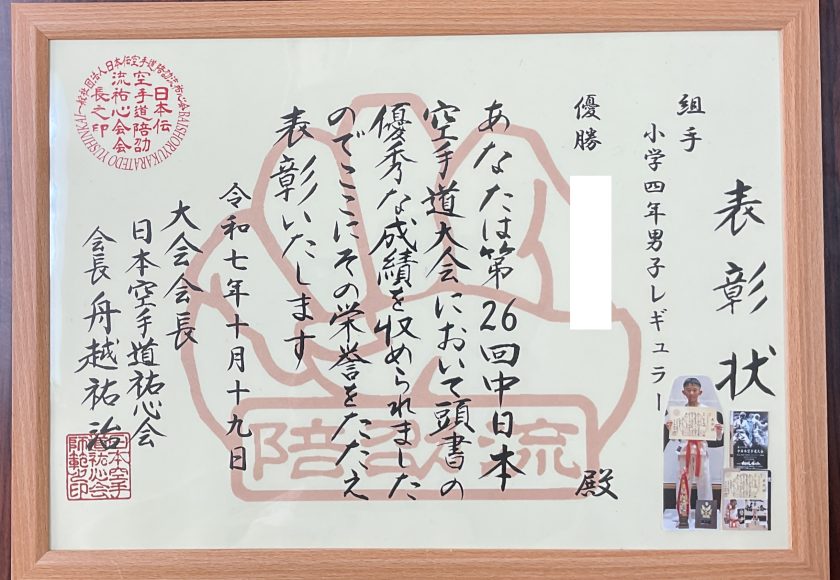 表彰状
組手
小学四年男子レギュラー
優勝
殿
あなたは第26回中日本
空手道大会において頭書の
優秀な成績を収められました
のでここにその栄誉をたたえ
表彰いたします
令和七年十月十九日
大会会長
日本空手道祐心会
会長 舟越祐治
日本伝
空手道陪劭
流祐心会会
長之印
日本空手
道祐心会
師範之印
陪劭流